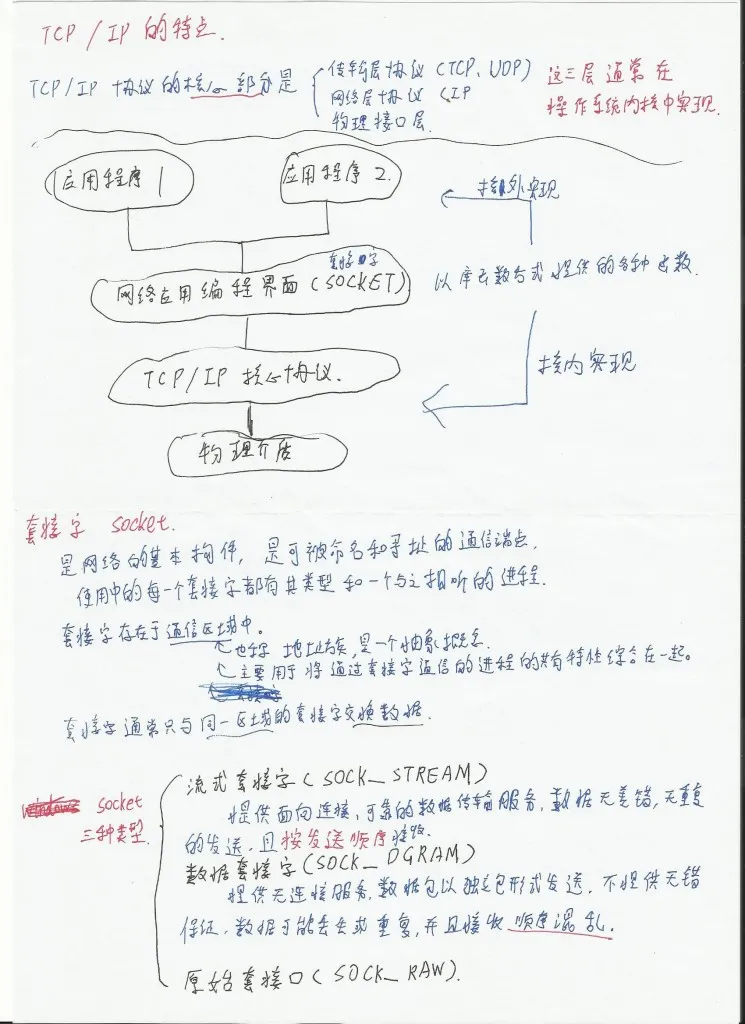 TCP / IP 的特点.
TCP/IP 协议的核心部分是
传输层协议 (TCP、UDP)
网络层协议 (IP
物理接口层.
这三层通常在
操作系统内核中实现.
应用程序 1
应用程序 2.
核外实现
套接字
网络应用编程界面 (SOCKET)
以库函数方式提供的各种函数.
TCP/IP 核心协议.
核内实现
物理介质
套接字 socket.
是网络的基本构件, 是可被命名和寻址的通信端点,
使用中的每一个套接字都有其类型和一个与之相听的进程.
套接字存在于通信区域中。
也称 地址族, 是一个抽象概念.
主要用于将通过套接字通信的进程的共有特性综合在一起。
套接字通常只与同一区域的套接字交换数据.
windows socket
三种类型.
流式套接字 ( SOCK_STREAM )
提供面向连接, 可靠的数据传输服务, 数据无差错, 无重复
的发送, 且按发送顺序接收.
数据套接字 (SOCK_DGRAM)
提供无连接服务. 数据包以独立包形式发送. 不提供无错
保证. 数据可能丢失或重复, 并且接收顺序混乱.
原始套接口 ( SOCK_RAW).